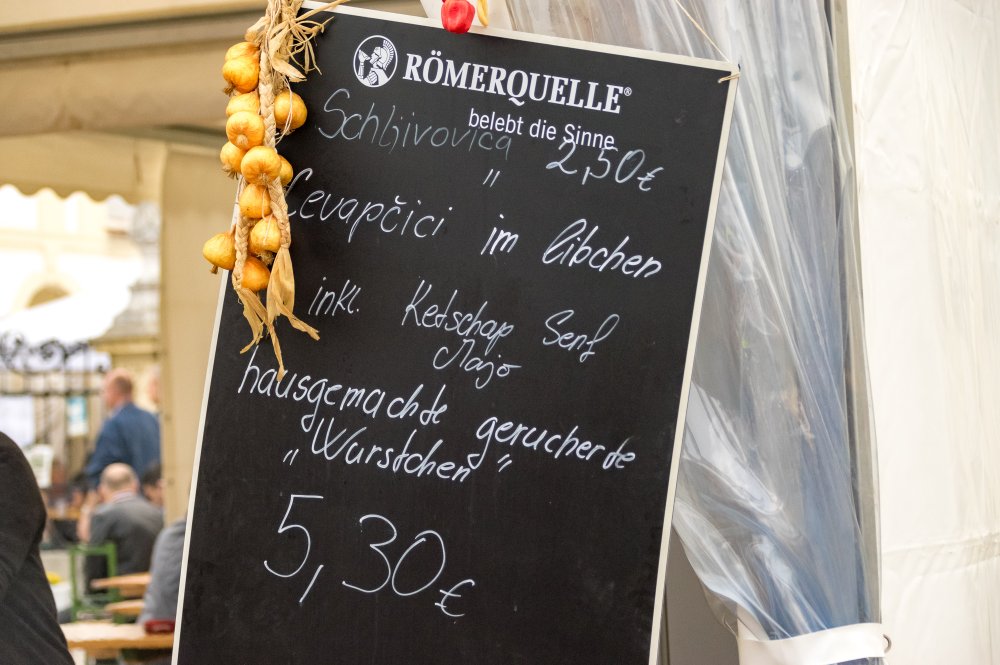 RÖMERQUELLE®
belebt die Sinne
Schljivovica 2,50€
"
Cevapčici im libchen
inkl. Ketschap Senf
Majo
hausgemachte gerucherte
"Wurstchen"
5,30€